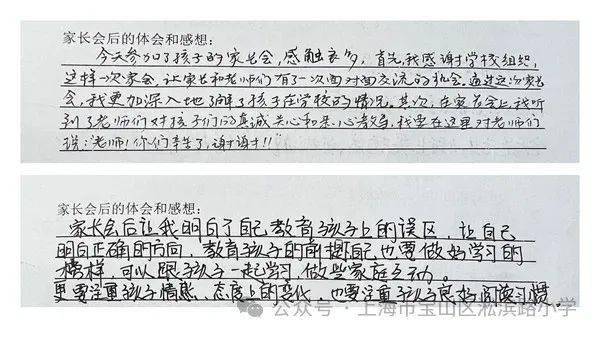 家长会后的体会和感想：
今天参加了孩子的家长会，感触良多，首先，我感谢学校组织
这样一次家会，让家长和老师们有了一次面对面交流的机会。通过这次家长
会，我更加深入地了解了孩子在学校的情况。其次，在家长会上我听
到了老师们对孩子们的真诚关心和悉心教导，我要在这里对老师们
说：“老师！你们辛苦了，谢谢！！”
家长会后的体会和感想：
家长会后让我明白了自己教育孩子上的误区，让自己
明白正确的方向，教育孩子的前提自己也要做好学习的
榜样，可以跟孩子一起学习，做些家庭互动。
更要注重孩子情感、态度上的变化，也要注重孩子良好阅读习惯。
公众号·上海市宝山区淞滨路小学